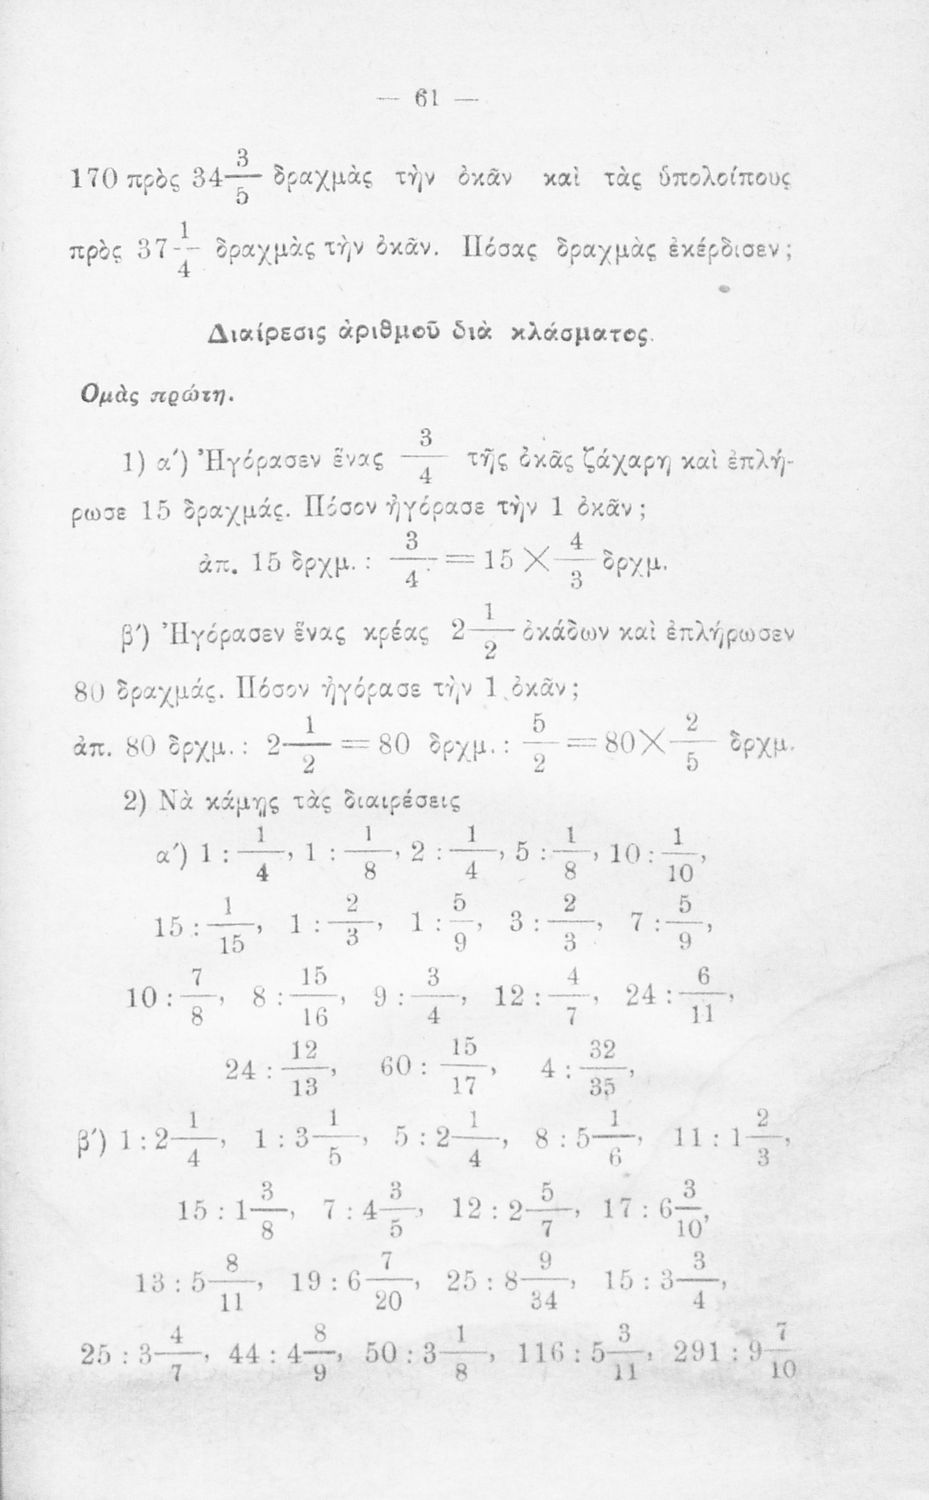 — 61 —
170 πρὸς 34 3/5 δραχμὰς τὴν ὀκᾶν καὶ τὰς ὑπολοίπους
πρὸς 37 1/4 δραχμὰς τὴν ὀκᾶν. Πόσας δραχμὰς ἐκέρδισεν;
Διαίρεσις ἀριθμοῦ διὰ κλάσματος.
Ομὰς πρώτη.
1) α΄) Ἠγόρασεν ἕνας 3/4 τῆς ὀκᾶς ζάχαρη καὶ ἐπλή-
ρωσε 15 δραχμάς. Πόσον ἠγόρασε τὴν 1 ὀκᾶν;
ἀπ. 15 δρχμ. : 3/4 = 15 × 4/3 δρχμ.
β΄) Ἠγόρασεν ἕνας κρέας 2 1/2 ὀκάδων καὶ ἐπλήρωσεν
80 δραχμάς. Πόσον ἠγόρασε τὴν 1 ὀκᾶν;
ἀπ. 80 δρχμ. : 2 1/2 = 80 δρχμ. : 5/2 = 80 × 2/5 δρχμ.
2) Νὰ κάμῃς τὰς διαιρέσεις
α΄) 1 : 1/4, 1 : 1/8, 2 : 1/4, 5 : 1/8, 10 : 1/10,
15 : 1/15, 1 : 2/3, 1 : 5/9, 3 : 2/3, 7 : 5/9,
10 : 7/8, 8 : 15/16, 9 : 3/4, 12 : 4/7, 24 : 6/11,
24 : 12/13, 60 : 15/17, 4 : 32/35,
β΄) 1 : 2 1/4, 1 : 3 1/5, 5 : 2 1/4, 8 : 5 1/6, 11 : 1 2/3,
15 : 1 3/8, 7 : 4 3/5, 12 : 2 5/7, 17 : 6 3/10,
13 : 5 8/11, 19 : 6 7/20, 25 : 8 9/34, 15 : 3 3/4,
25 : 3 4/7, 44 : 4 8/9, 50 : 3 1/8, 116 : 5 3/11, 291 : 9 7/10